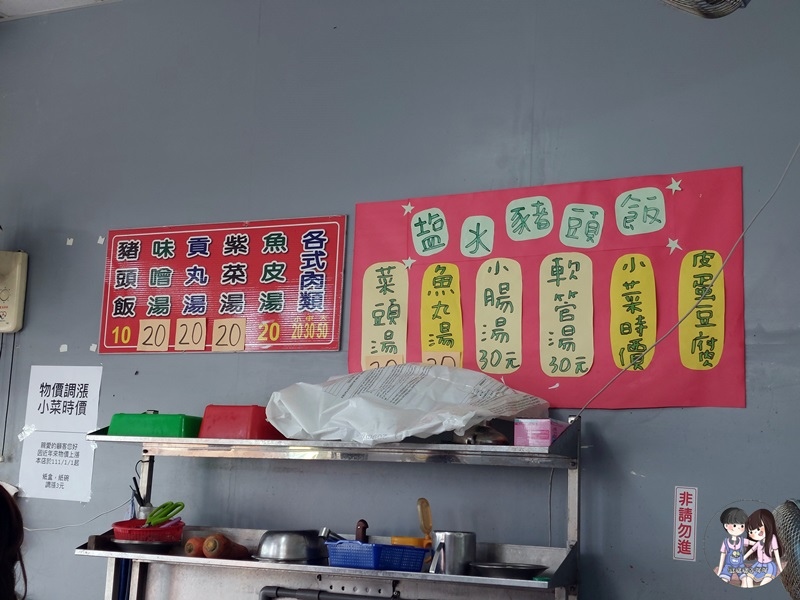 豬頭飯 10
味噌湯 20
貢丸湯 20
紫菜湯 20
魚皮湯 20
各式肉類 20 30 50
塩水豬頭飯
菜頭湯
魚丸湯
小腸湯 30元
軟管湯 30元
小菜時價
皮蛋豆腐
物價調漲
小菜時價
親愛的顧客您好
因近年來物價上漲
本店於111/1/1起
紙盒、紙碗
調漲3元
非請勿進